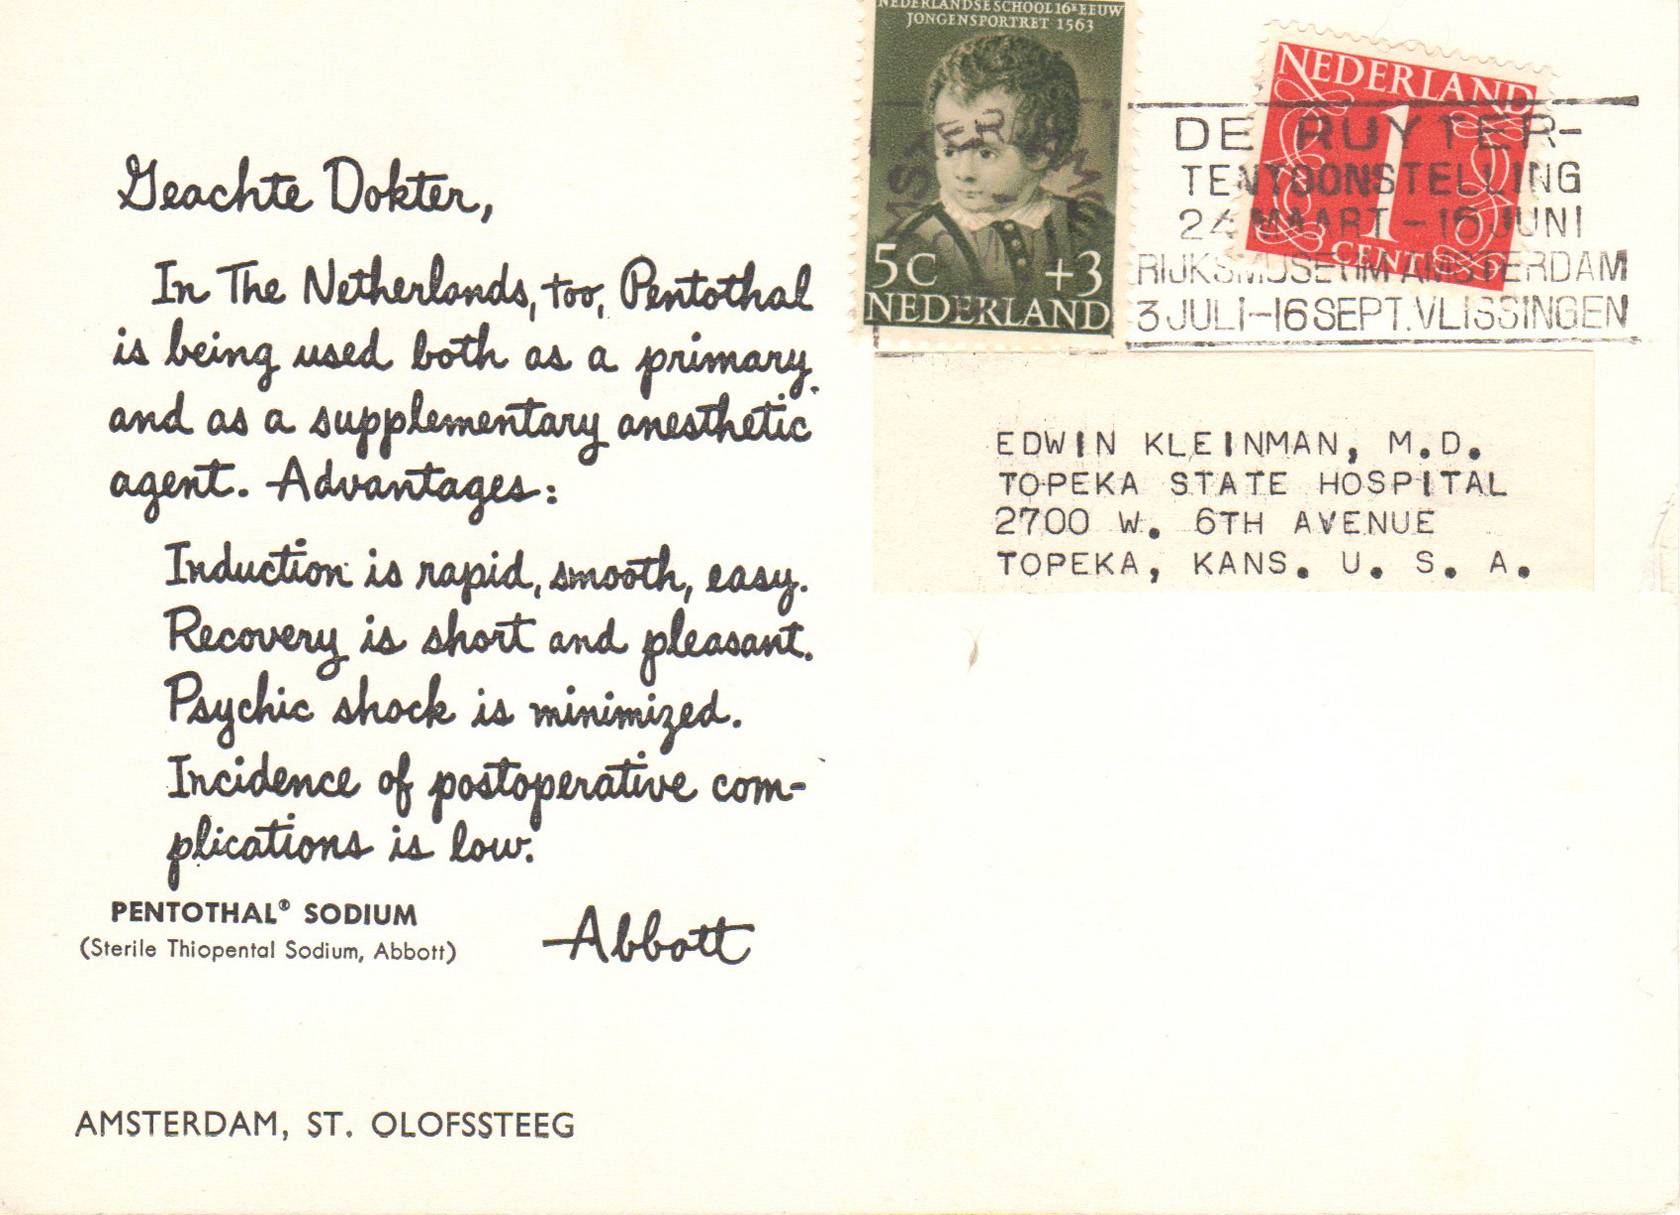 Geachte Dokter,
In The Netherlands, too, Pentothal
is being used both as a primary
and as a supplementary anesthetic
agent. Advantages:
Induction is rapid, smooth, easy.
Recovery is short and pleasant.
Psychic shock is minimized.
Incidence of postoperative com-
plications is low.
PENTOTHAL® SODIUM
(Sterile Thiopental Sodium, Abbott)
Abbott
AMSTERDAM, ST. OLOFSSTEEG
NEDERLANDSE SCHOOL 16E EEUW
JONGENSPORTRET 1563
5C +3
NEDERLAND
NEDERLAND
1
CENT
DE RUYTER-
TENTOONSTELLING
24 MAART - 16 JUNI
RIJKSMUSEUM AMSTERDAM
3 JULI-16 SEPT. VLISSINGEN
EDWIN KLEINMAN, M.D.
TOPEKA STATE HOSPITAL
2700 W. 6TH AVENUE
TOPEKA, KANS. U. S. A.